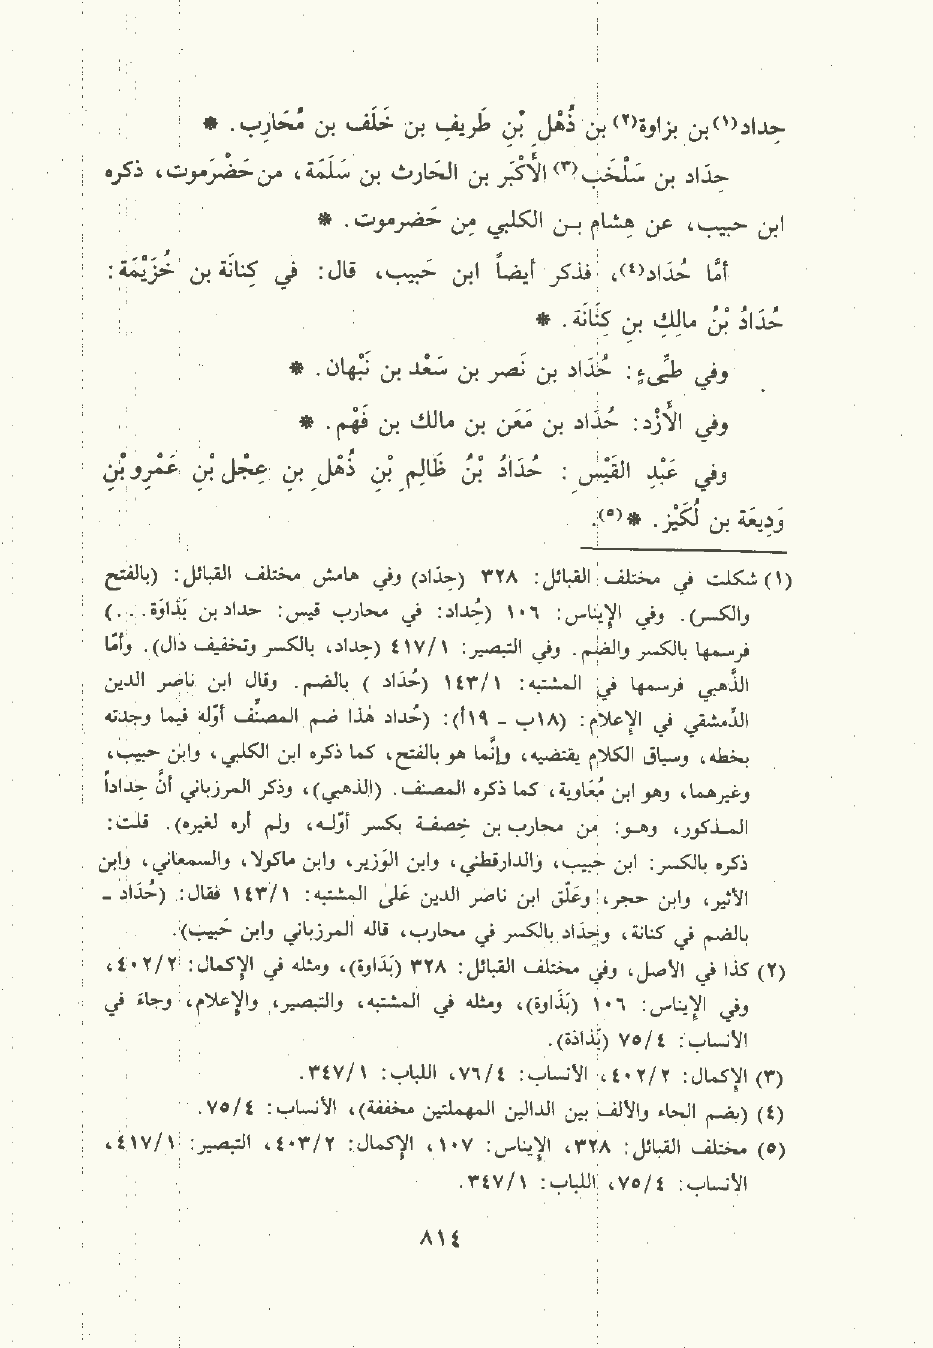 حِداد(١) بن بزاوة(٢) بن ذُهْلِ بْنِ طَريفِ بن خَلَف بن مُحَارِب. *
حِدَاد بن سَلْخَب(٣) الأَكْبَر بن الحَارث بن سَلَمَة، من حَضْرَموت، ذكره
ابن حبيب، عن هِشام بـن الكلبي مِن حَضرموت. *
أمَّا حُدَاد(٤)، فذكر أيضاً ابن حَبيب، قال: في كِنانَة بن خُزَيْمَة:
حُدَادُ بْنُ مالِكِ بنِ كِنَانَة. *
وفي طَيِّىءٍ: حُدَاد بن نَصر بن سَعْد بن نَبْهان. *
وفي الأَزْد: حُدَاد بن مَعَن بن مالك بن فَهْم. *
وفي عَبْدِ القَيْسِ: حُدَادُ بْنُ ظَالِمِ بْنِ ذُهْلِ بن عِجْلِ بْنِ عَمْرِو بْنِ
وَدِيعَة بن لُكَيْز. *(٥).
(١) شكلت في مختلف القبائل: ٣٢٨ (حِدَاد) وفي هامش مختلف القبائل: (بالفتح
والكسر). وفي الإيناس: ١٠٦ (حُداد: في محارب قيس: حداد بن بَذَاوَة. . .)
فرسمها بالكسر والضم. وفي التبصير: ٤١٧/١ (حِداد، بالكسر وتخفيف دال). وأمّا
الذَّهبي فرسمها في المشتبه: ١٤٣/١ (حُدَاد ) بالضم. وقال ابن ناصر الدين
الدِّمشقي في الإعلام: (١٨ب - ١٩أ): (حداد هٰذا ضم المصنِّف أوّله فيما وجدته
بخطه، وسياق الكلام يقتضيه، وإنَّما هو بالفتح، كما ذكره ابن الكلبي، وابن حبيب،
وغيرهما، وهو ابن مُعَاوية، كما ذكره المصنف. (الذهبي)، وذكر المرزباني أنَّ حِداداً
المـذكور، وهـو: من محارب بن خِصفـة بكسر أوّلـه، ولم أره لغيره). قلت:
ذكره بالكسر: ابن حبيب، والدارقطني، وابن الوَزير، وابن ماكولا، والسمعاني، وابن
الأثير، وابن حجر، وعَلَّق ابن ناصر الدين عَلى المشتبه: ١٤٣/١ فقال: (حُدَاد -
بالضم في كنانة، وحِداد بالكسر في محارب، قاله المرزباني وابن حَبيب).
(٢) كذا في الأصل، وفي مختلف القبائل: ٣٢٨ (بَدَاوة)، ومثله في الإكمال: ٤٠٢/٢،
وفي الإيناس: ١٠٦ (بَذَاوة)، ومثله في المشتبه، والتبصير، والإعلام، وجاءَ في
الأنساب: ٧٥/٤ (بَذاذة).
(٣) الإكمال: ٤٠٢/٢، الأنساب: ٧٦/٤، اللباب: ٣٤٧/١.
(٤) (بضم الحاء والألف بين الدالين المهملتين مخففة)، الأنساب: ٧٥/٤.
(٥) مختلف القبائل: ٣٢٨، الإيناس: ١٠٧، الإكمال: ٤٠٣/٢، التبصير: ٤١٧/١،
الأنساب: ٧٥/٤، اللباب: ٣٤٧/١.
٨١٤